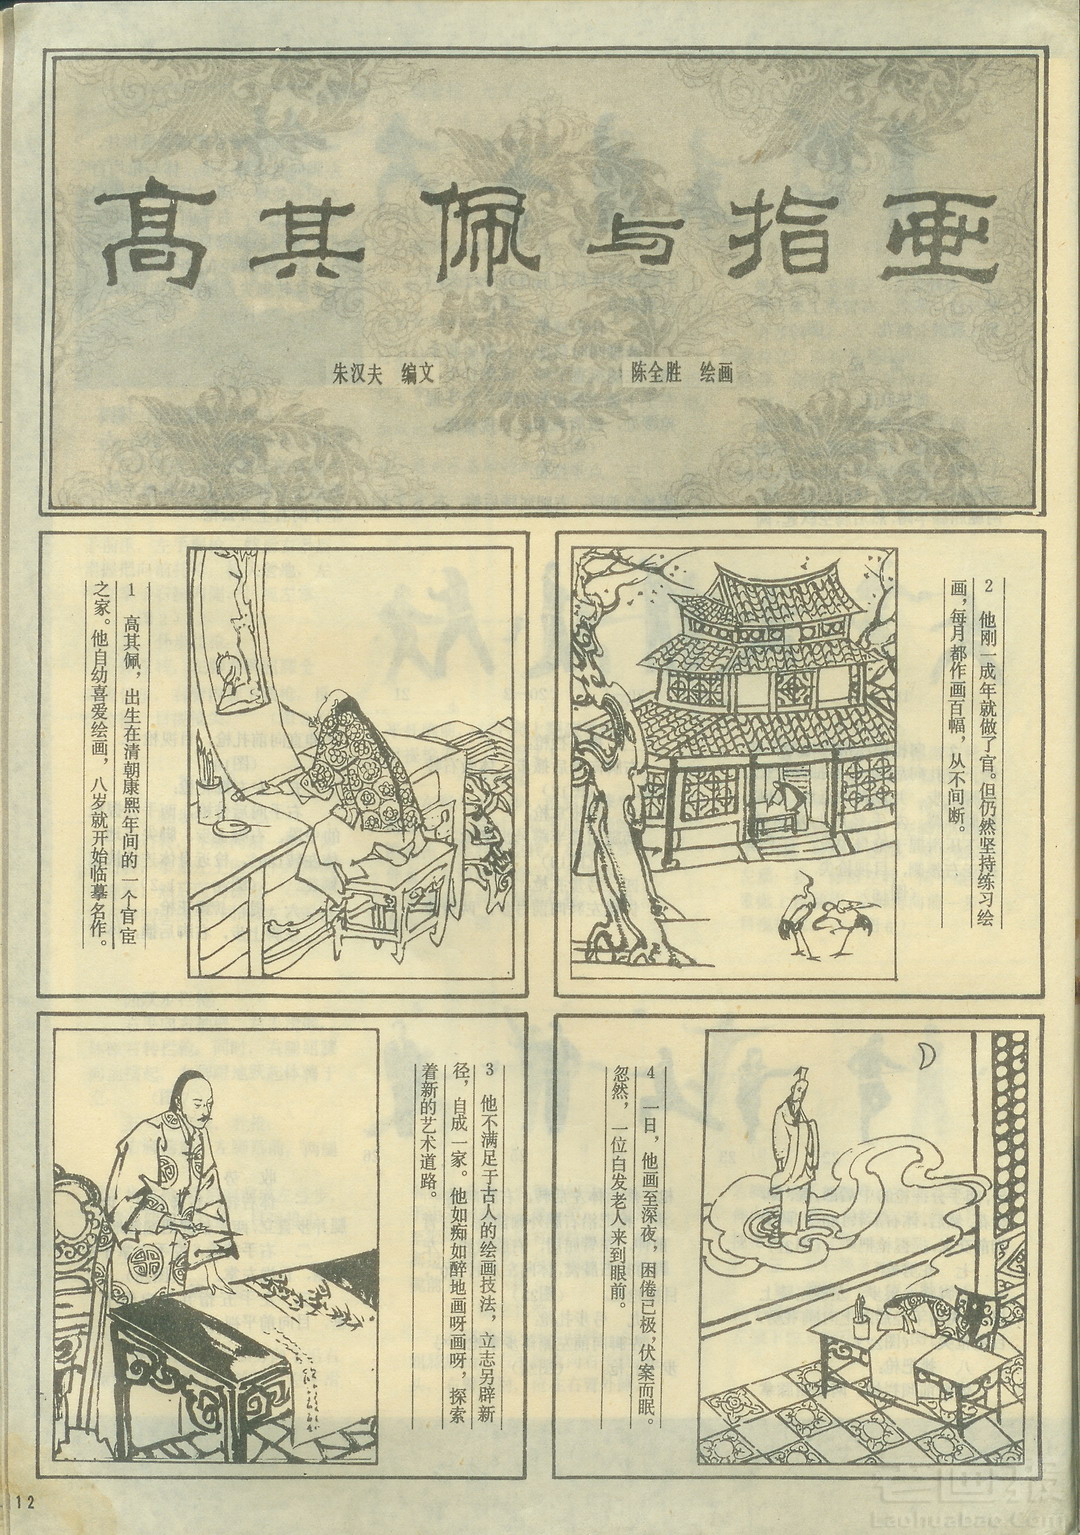 高其佩与指画
朱汉夫 编文
陈全胜 绘画
1 高其佩，出生在清朝康熙年间的一个官宦
之家。他自幼喜爱绘画，八岁就开始临摹名作。
2 他刚一成年就做了官。但仍然坚持练习绘
画，每月都作画百幅，从不间断。
3 他不满足于古人的绘画技法，立志另辟新
径，自成一家。他如痴如醉地画呀画呀，探索
着新的艺术道路。
4 一日，他画至深夜，困倦已极，伏案而眠。
忽然，一位白发老人来到眼前。
12
老画报
Laohuabao.Com